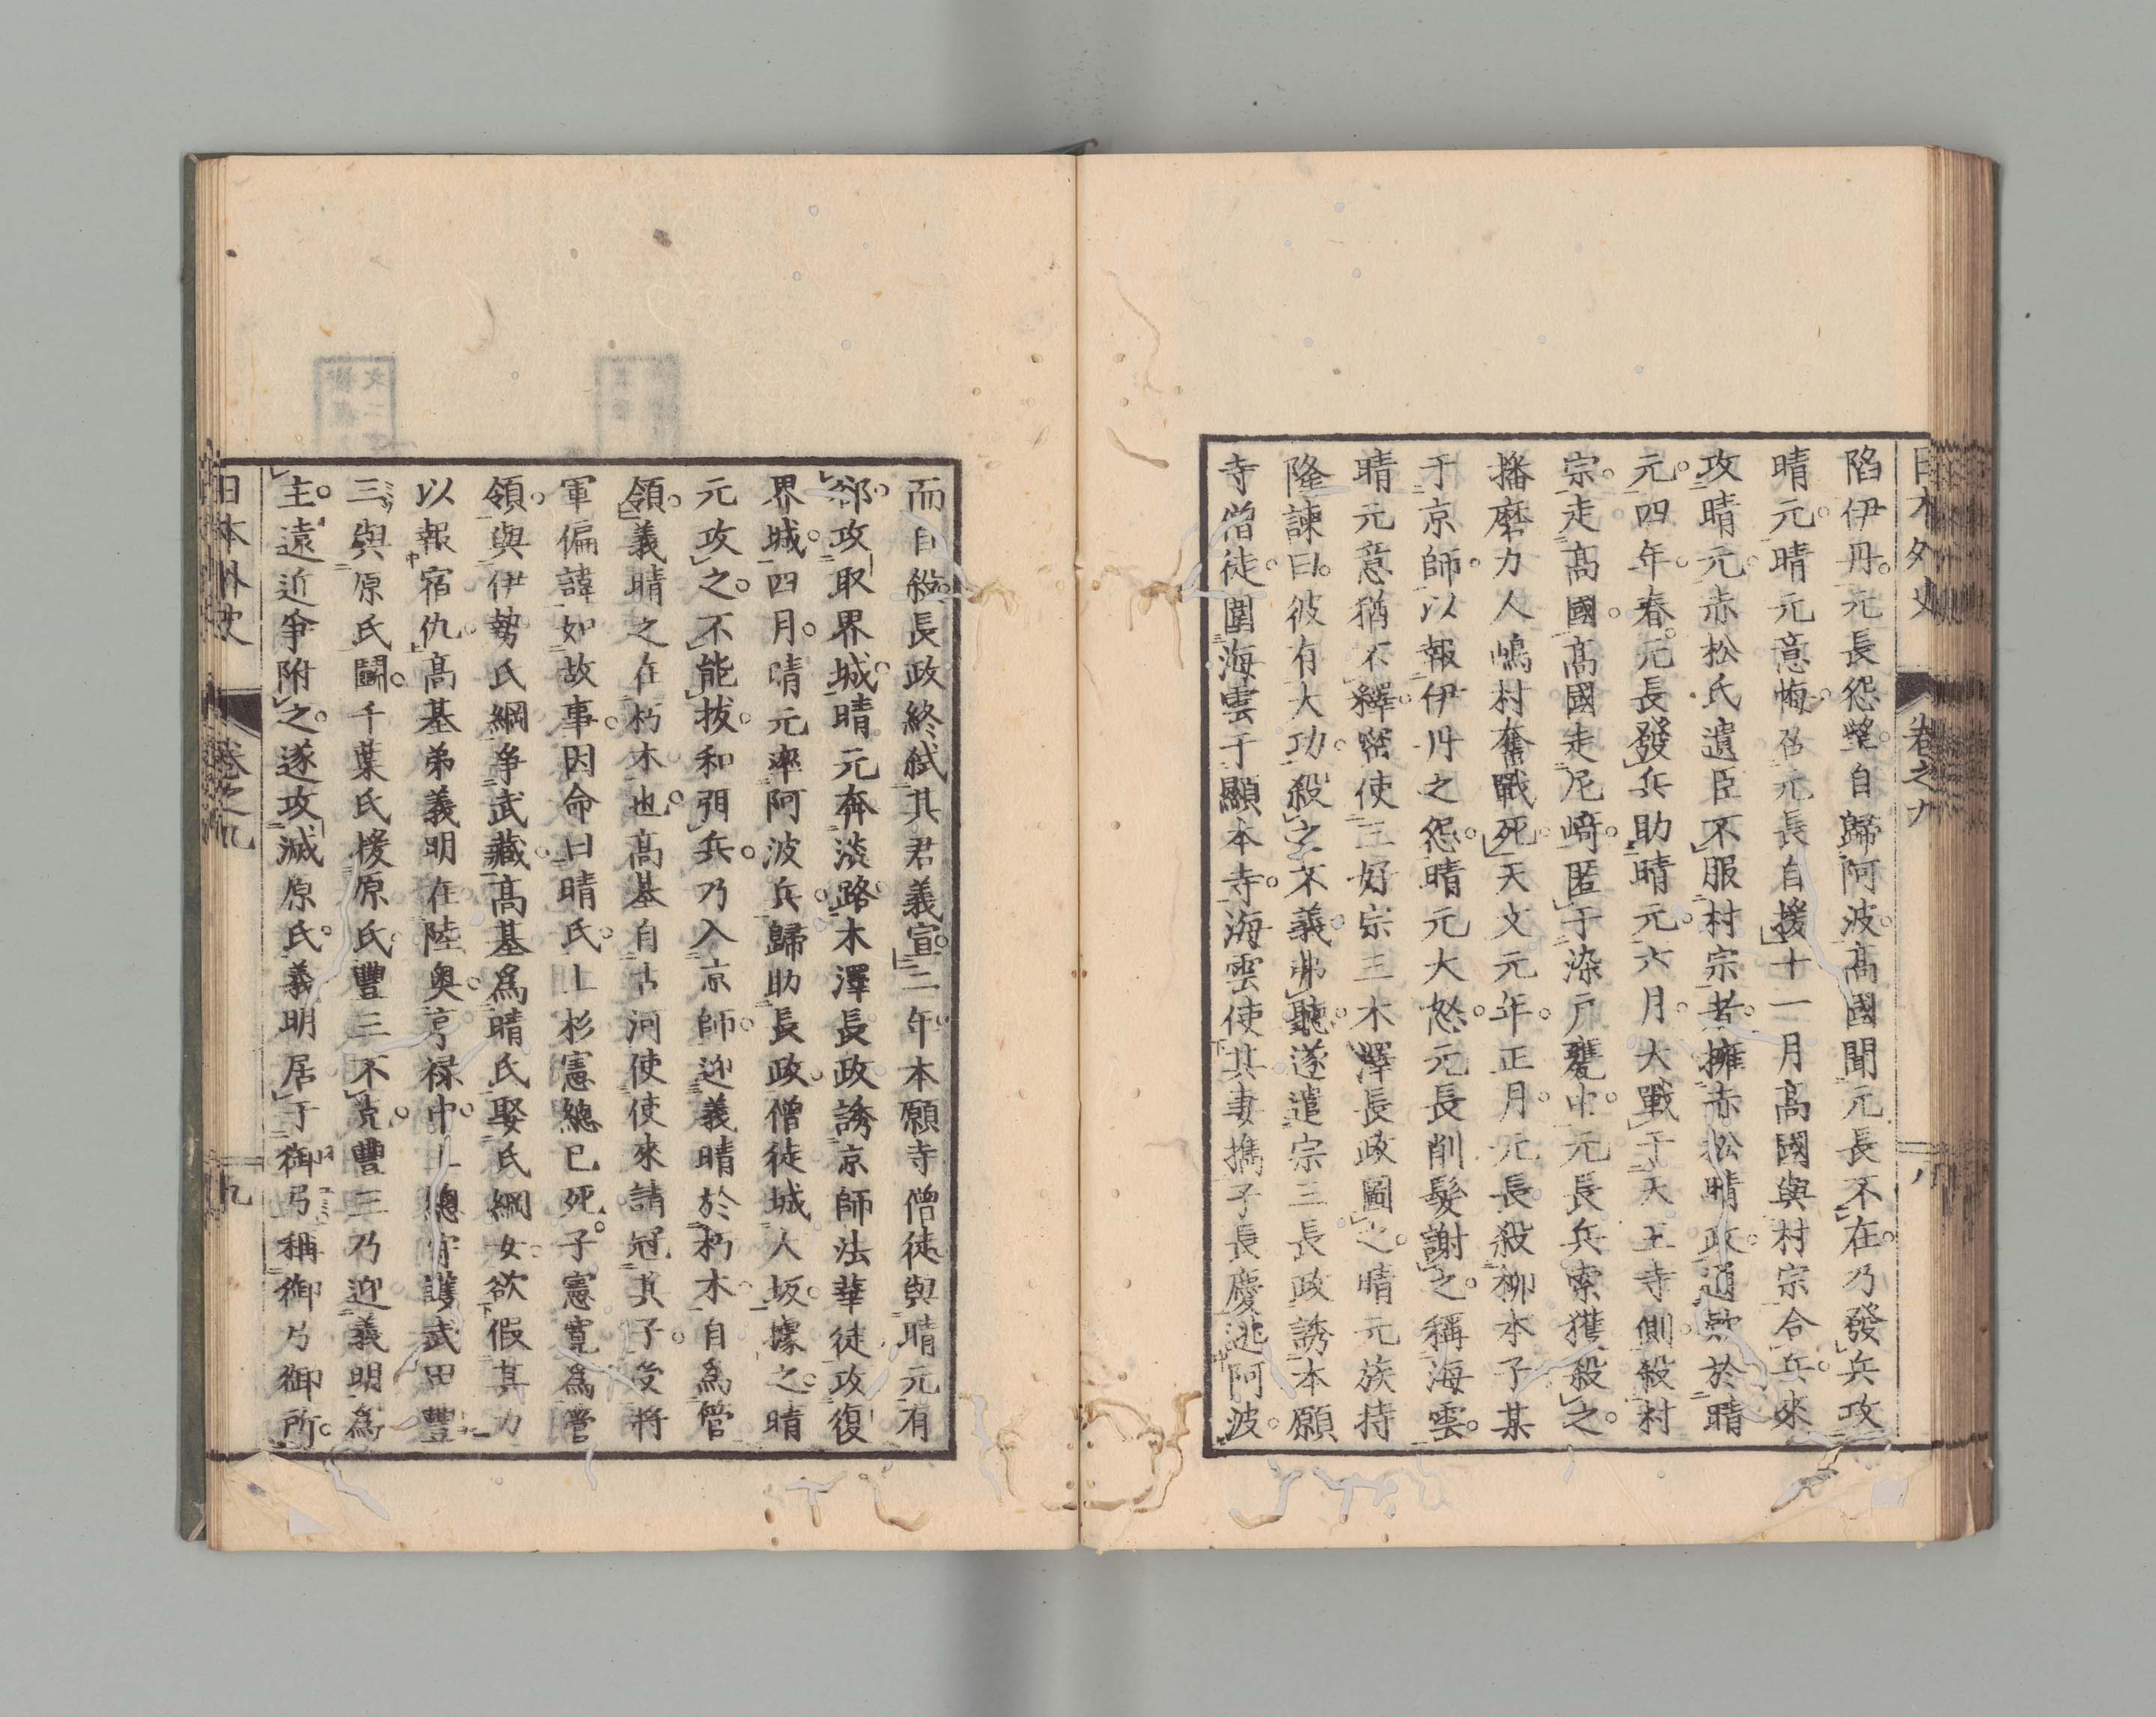 日本外史 卷之九 八
陷伊丹。元長怨望。自歸阿波。高國聞元長不在。乃發兵攻
晴元。晴元意悔。召元長自援。十一月高國與村宗合兵。來
攻晴元。赤松氏遺臣不服村宗者。擁赤松晴政。通款於晴
元。四年。春。元長發兵助晴元。六月。大戰于天王寺側。殺村
宗。走高國。高國走尼﨑。匿于染戶甕中。元長兵索獲殺之。
播磨力人嶋村奮戰死。天文元年。正月。元長殺柳本子某
于京師。以報伊丹之怨。晴元大怒。元長削髮謝之。稱海雲。
晴元意猶不釋。密使三好宗三木澤長政圖之。晴元族持
隆諫曰。彼有大功。殺之不義。弗聽。遂遣宗三長政誘本願
寺僧徒。圍海雲于顯本寺。海雲使其妻擕子長慶逃阿波。
而自殺。長政終弑其君義宣。二年。本願寺僧徒與晴元有
郤。攻取界城。晴元奔淡路。木澤長政誘京師法華徒攻復
界城。四月。晴元率阿波兵歸助長政。僧徒城大坂。據之。晴
元攻之。不能拔。和弭兵。乃入京師。迎義晴於朽木。自爲管
領。義晴之在朽木也。高基自古河使使來請冠其子。受將
軍偏諱如故事。因命曰晴氏。上杉憲總已死。子憲寛爲管
領。與伊勢氏綱爭武藏。高基爲晴氏娶氏綱女。欲假其力
以報宿仇。高基弟義明在陸奥。亨祿中。上總守護武田豐
三與原氏鬪。千葉氏援原氏。豐三不克。豐三乃迎義明爲
主。遠近爭附之。遂攻滅原氏。義明居于御弓。稱御弓御所。
日本外史 卷之九 九